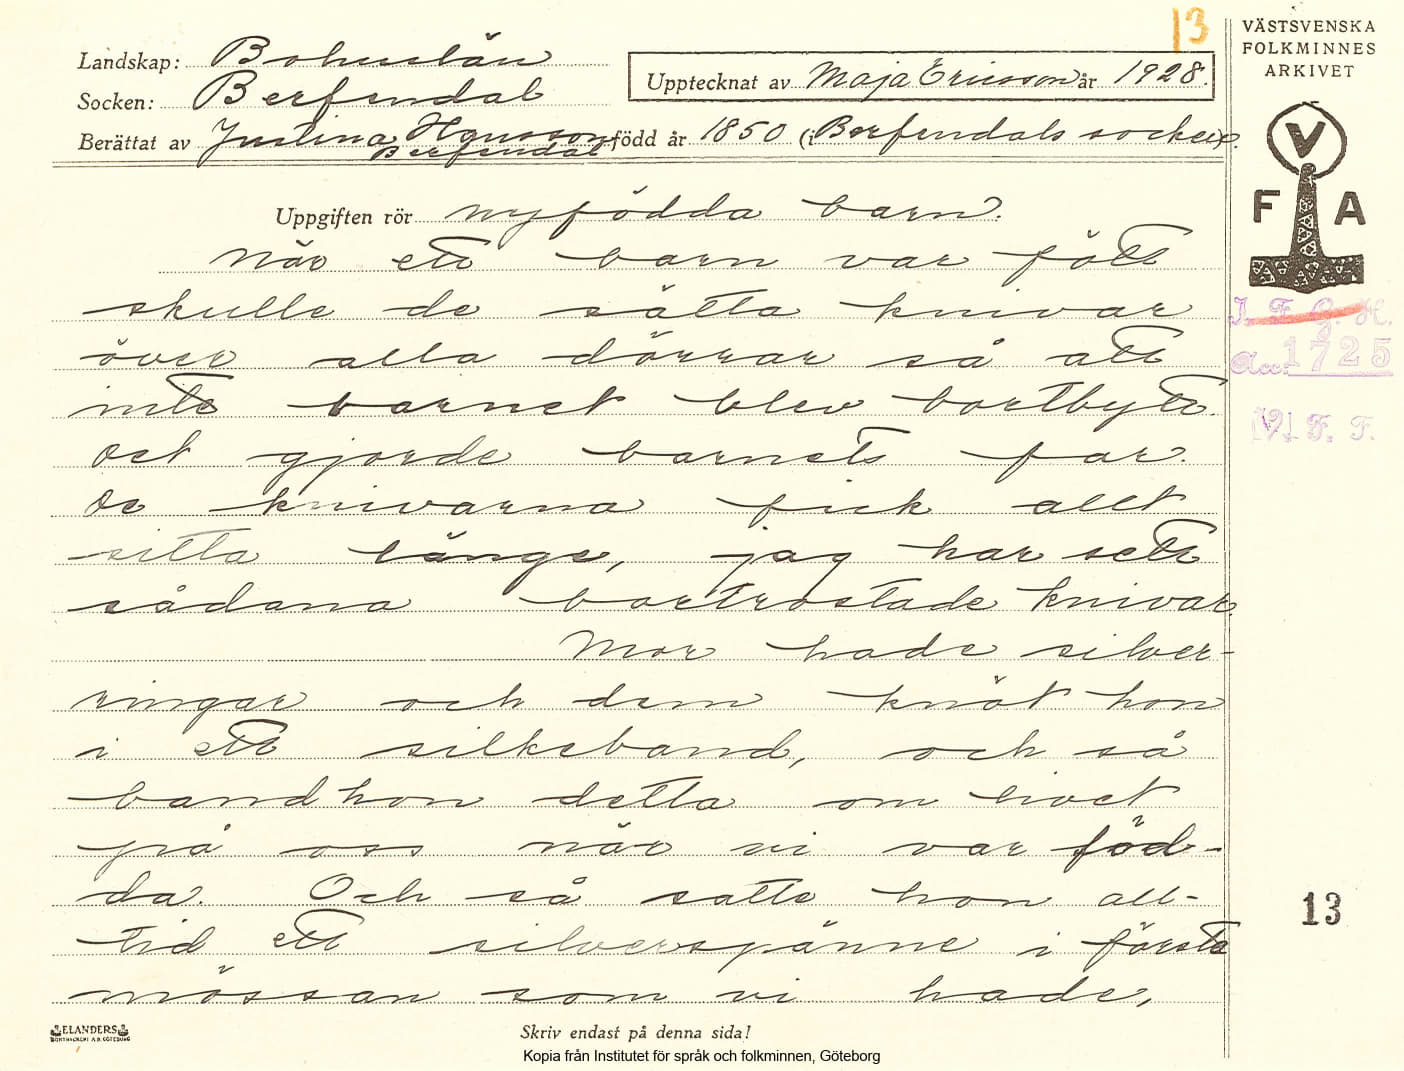 13
VÄSTSVENSKA
FOLKMINNES
ARKIVET
Landskap: Bohuslän
Upptecknat av Maja Ericsson år 1928.
Socken: Berfendal
Berättat av Justina Hansson född år 1850 (i Berfendals socken).
Berfendal
V
F A
Uppgiften rör nyfödda barn.
När ett barn var fött
skulle de sätta knivar
över alla dörrar så att
inte barnet blev bortbytt.
Det gjorde barnets far.
De knivarna fick allt
sitta länge, jag har sett
sådana bortrostade knivar.
Mor hade silver-
ringar och dem knöt hon
i ett silkeband, och så
band hon detta om livet
på oss när vi var föd-
da. Och så satte hon all-
tid ett silverspänne i första
mössan som vi hade,
I. F. G. H.
Acc. 1725
V. F. F.
13
ELANDERS
BOKTRYCKERI A.B. GÖTEBORG
Skriv endast på denna sida!
Kopia från Institutet för språk och folkminnen, Göteborg